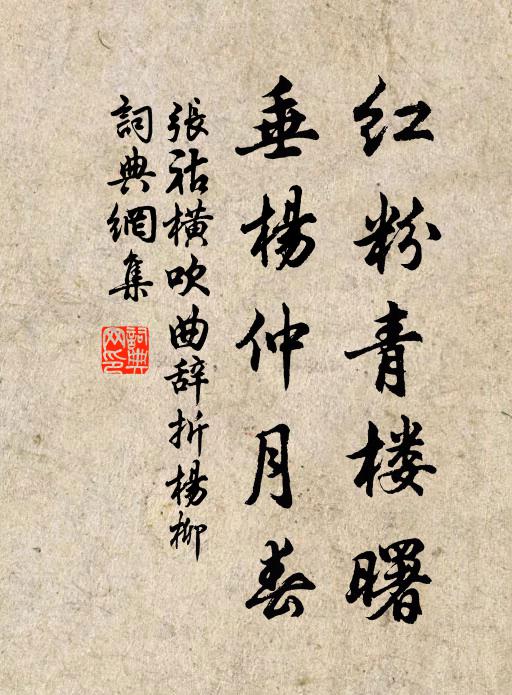 红粉青楼曙
垂楊仲月春
張祜橫吹曲辞折楊柳
詞典網集
詞典网印